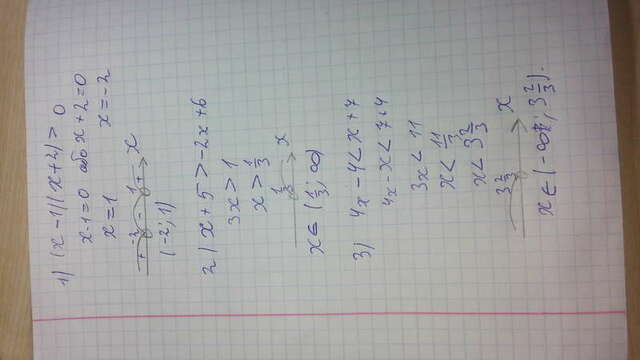 1) (x-1)(x+2)>0
x-1=0 або x+2=0
x=1 x=-2
+ -2 - 1 + x
(-2; 1)
2) x+5>-2x+6
3x>1
x>1/3
1/3 x
x∈(1/3; ∞)
3) 4x-4<x+7
4x-x<7+4
3x<11
x<11/3
x<3 2/3
3 2/3 x
x∈(-∞; 3 2/3).